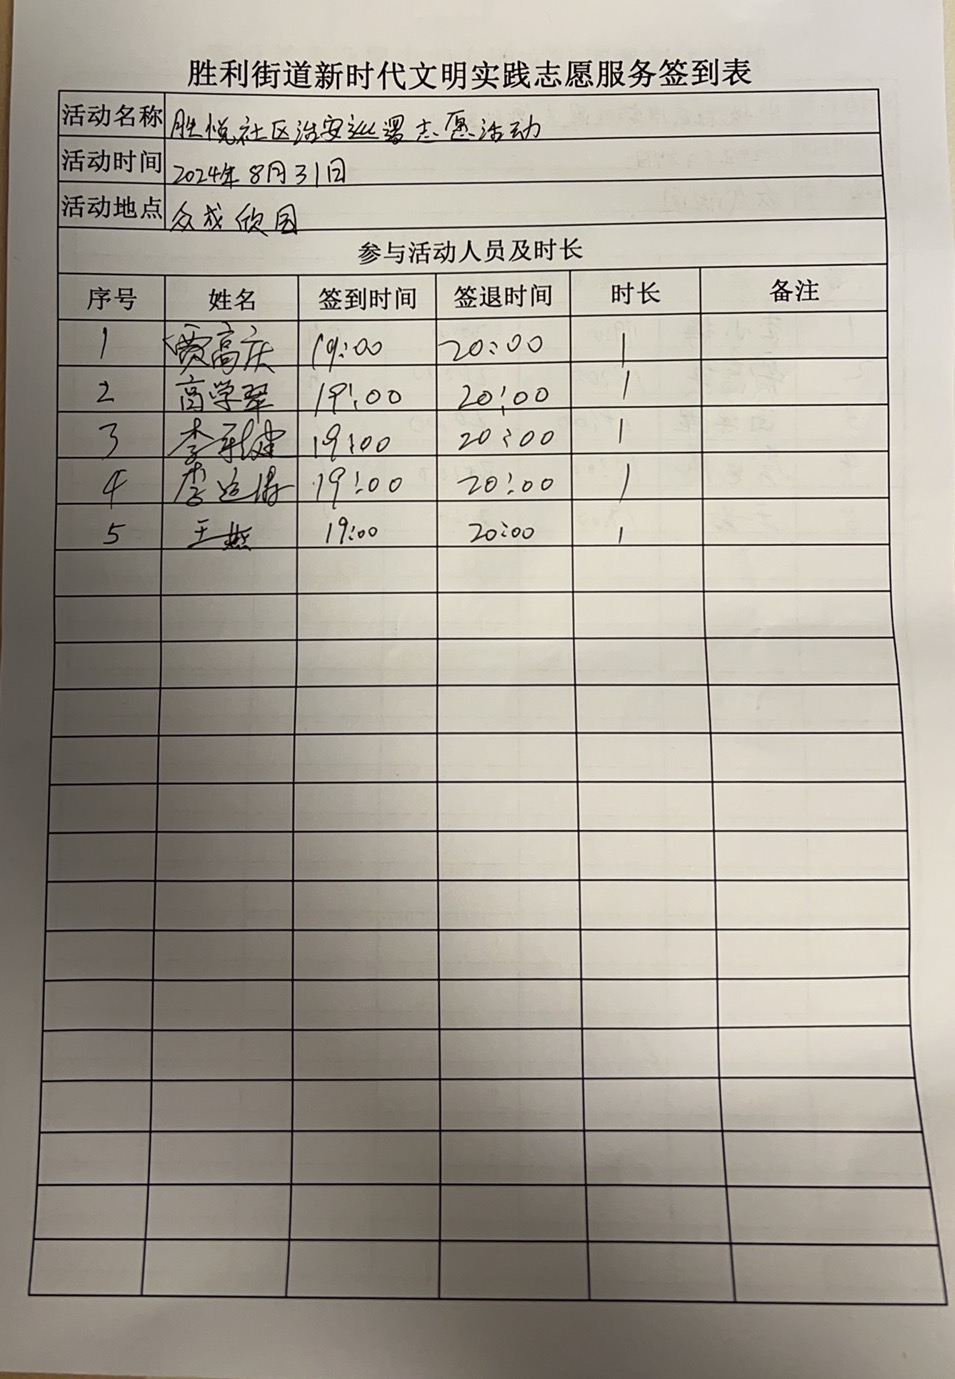 胜利街道新时代文明实践志愿服务签到表
活动名称 胜悦社区治安巡逻志愿活动
活动时间 2024年8月31日
活动地点 众成欣园
参与活动人员及时长
序号 姓名 签到时间 签退时间 时长 备注
1 贾高庆 19:00 20:00 1
2 高学翠 19:00 20:00 1
3 李 19:00 20:00 1
4 李运涛 19:00 20:00 1
5 王燕 19:00 20:00 1